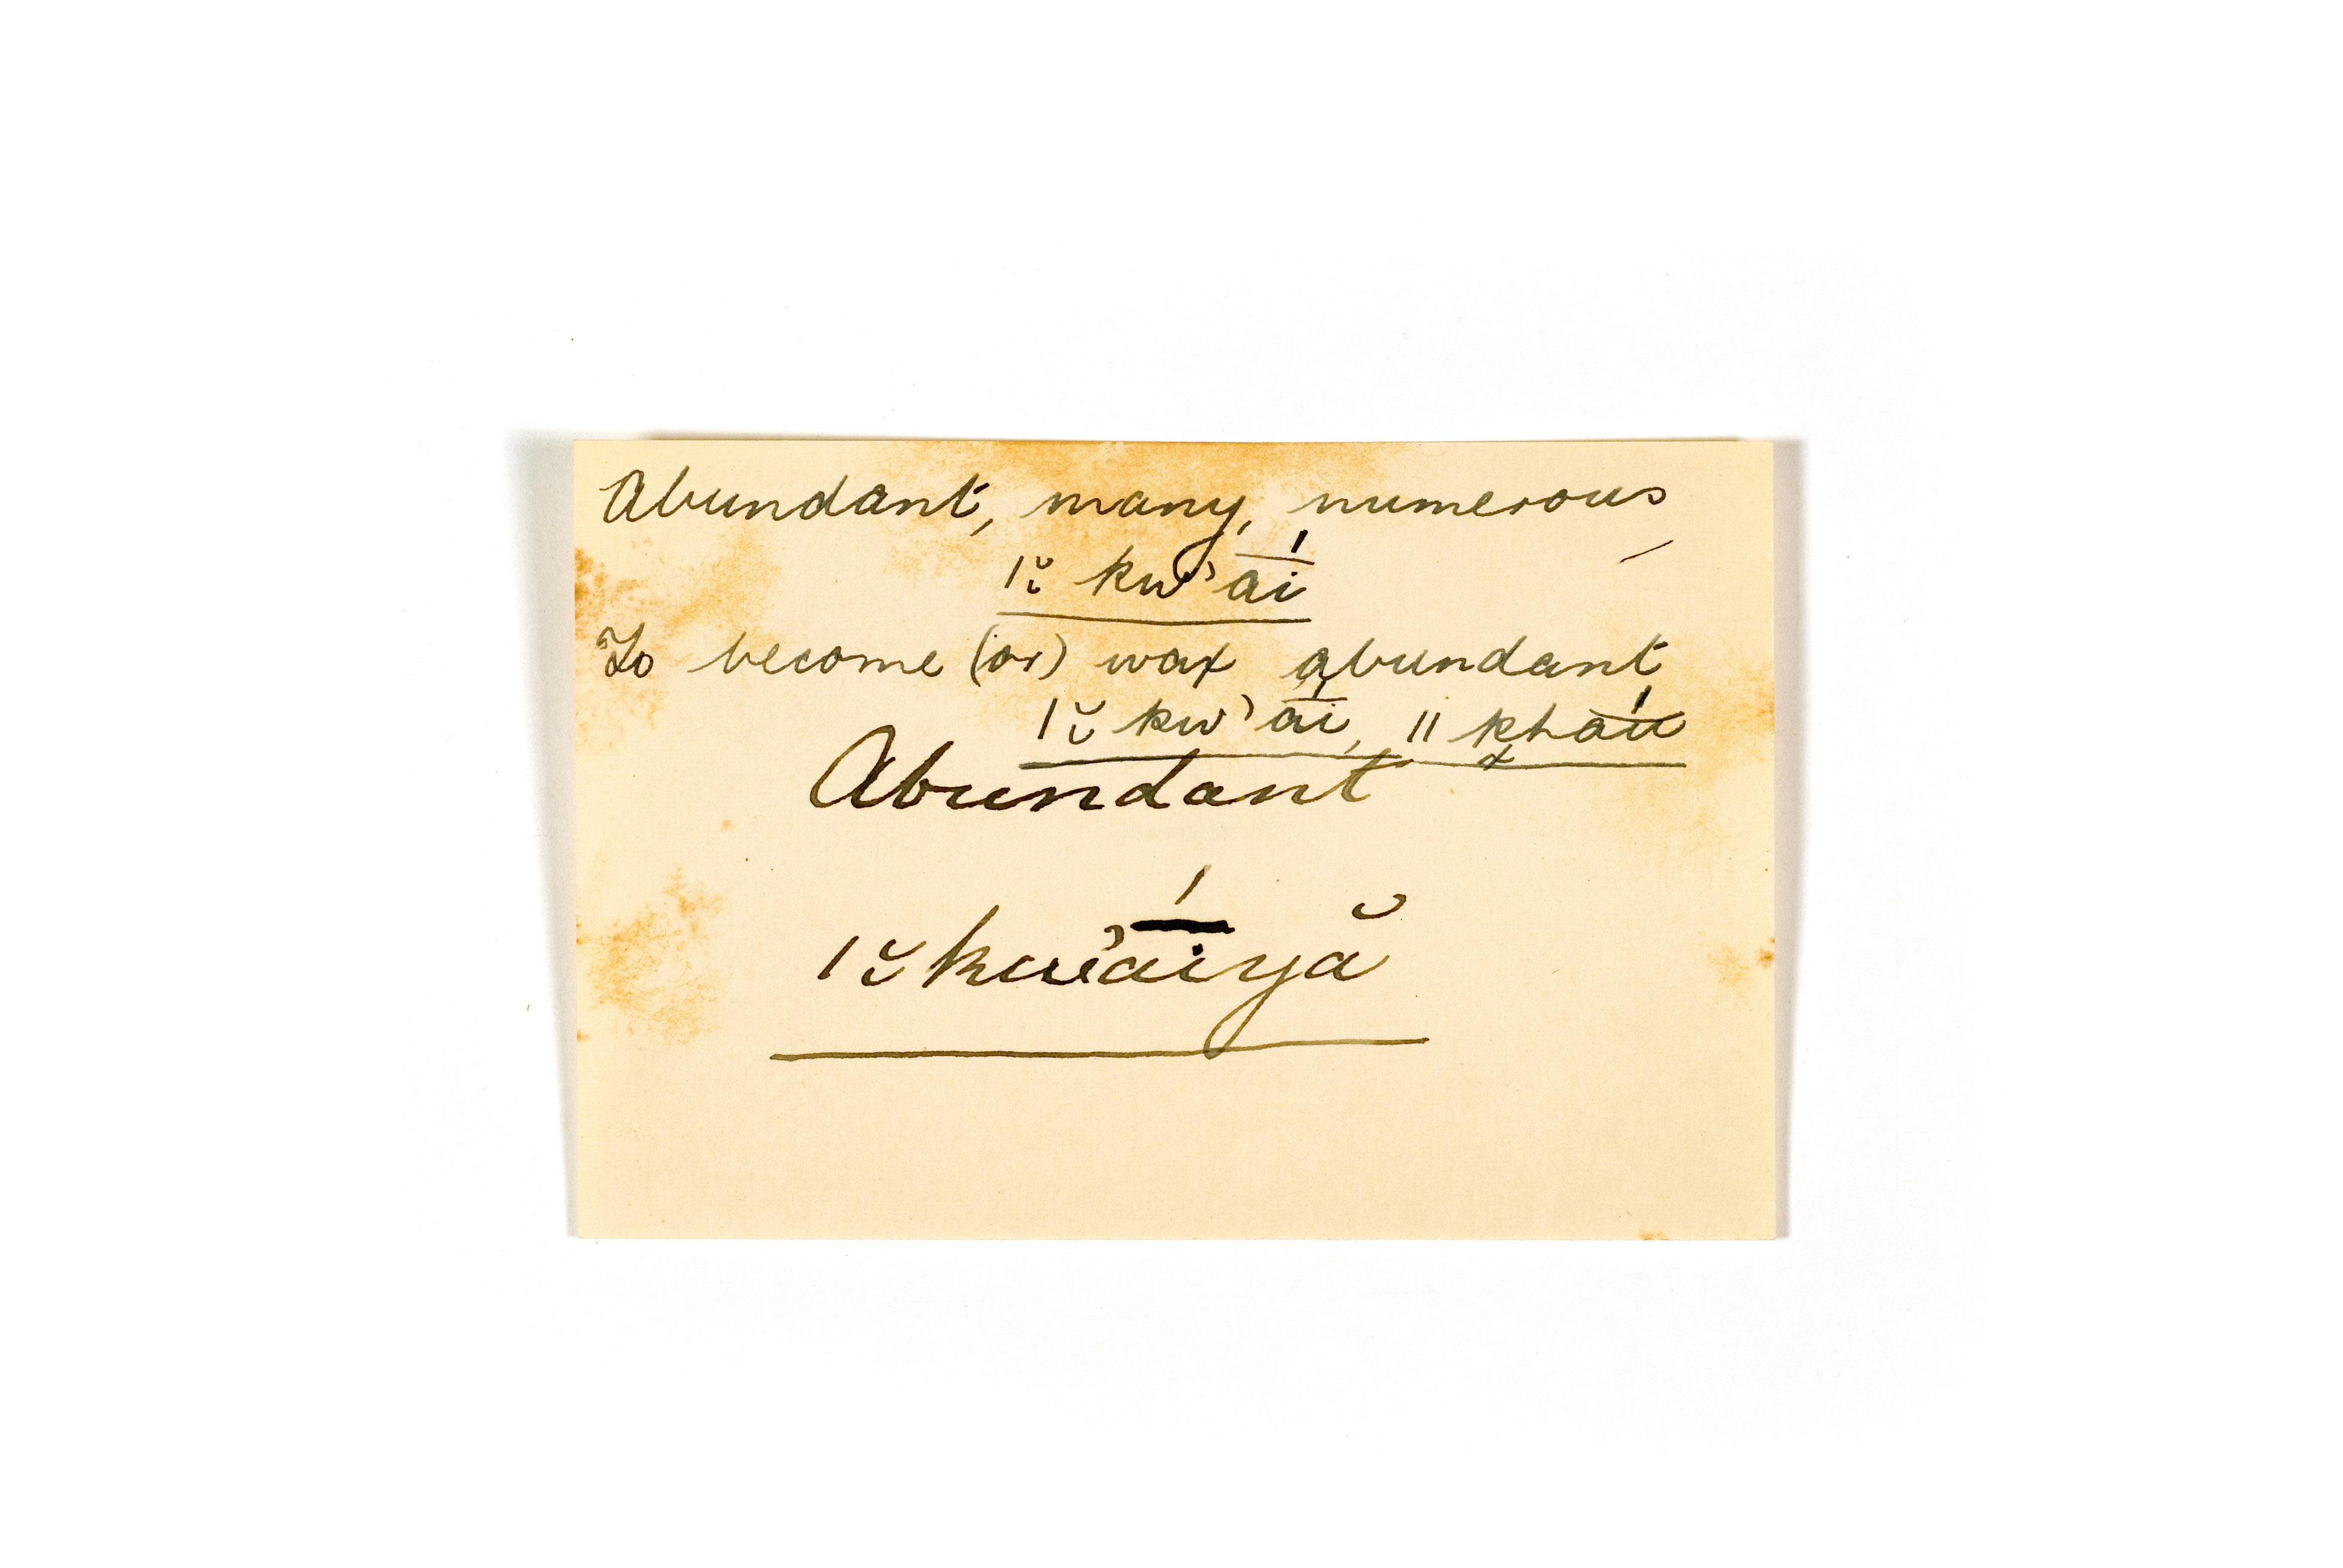 Abundant, many, numerous
|ĭ kw’a͞í
To become (or) wax abundant
|ĭ kw’a͞í, || kha͞ú
Abundant
|ĭ kw’a͞íyă